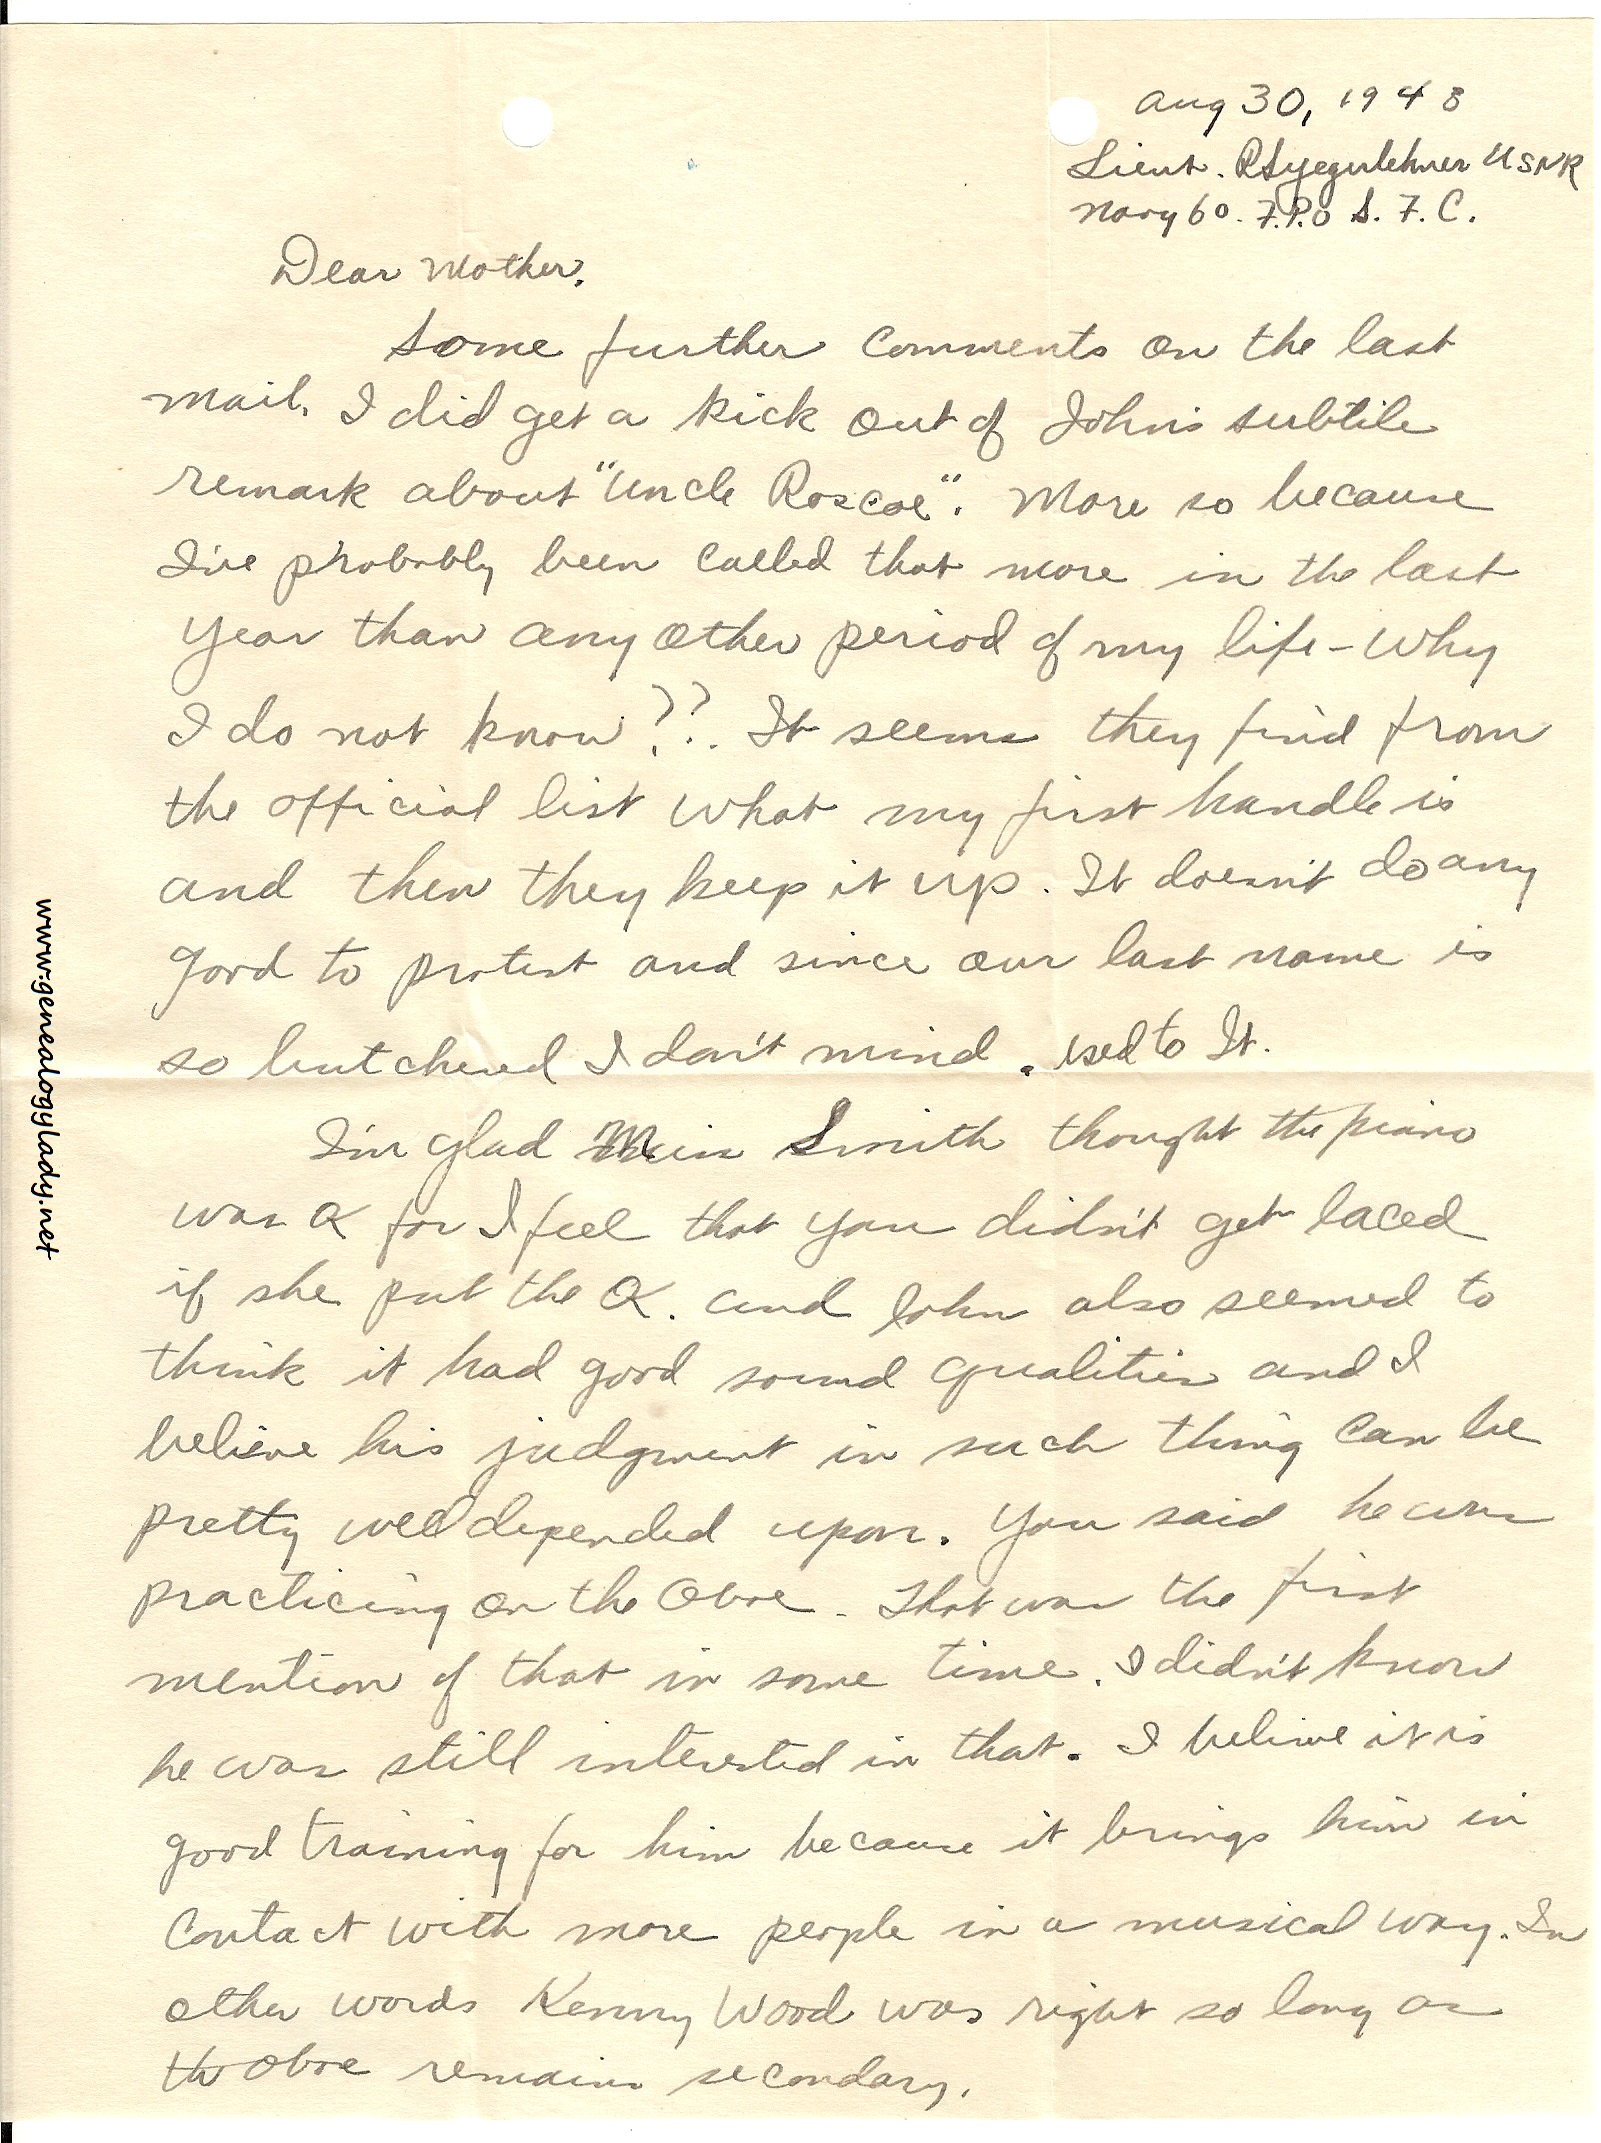 Aug 30, 1943
Lieut. RSYegerlehner USNR
Navy 60. F.P.O S. F. C.
Dear Mother.
Some further comments on the last
mail. I did get a kick out of John's subtile
remark about "Uncle Roscoe". More so because
I've probably been called that more in the last
year than any other period of my life - Why
I do not know??. It seems they find from
the official list what my first handle is
and then they keep it up. It doesn't do any
good to protest and since our last name is
so butchered I don't mind. used to It.
I'm glad Miss Smith thought the piano
was OK for I feel that you didn't get laced
if she put the OK. and John also seemed to
think it had good sound qualities and I
believe his judgment in such thing can be
pretty well depended upon. You said he was
practicing on the Oboe. That was the first
mention of that in some time. I didn't know
he was still interested in that. I believe it is
good training for him because it brings him in
Contact with more people in a musical way. In
other words Kenny Wood was right so long as
the Oboe remains secondary.
www.genealogylady.net